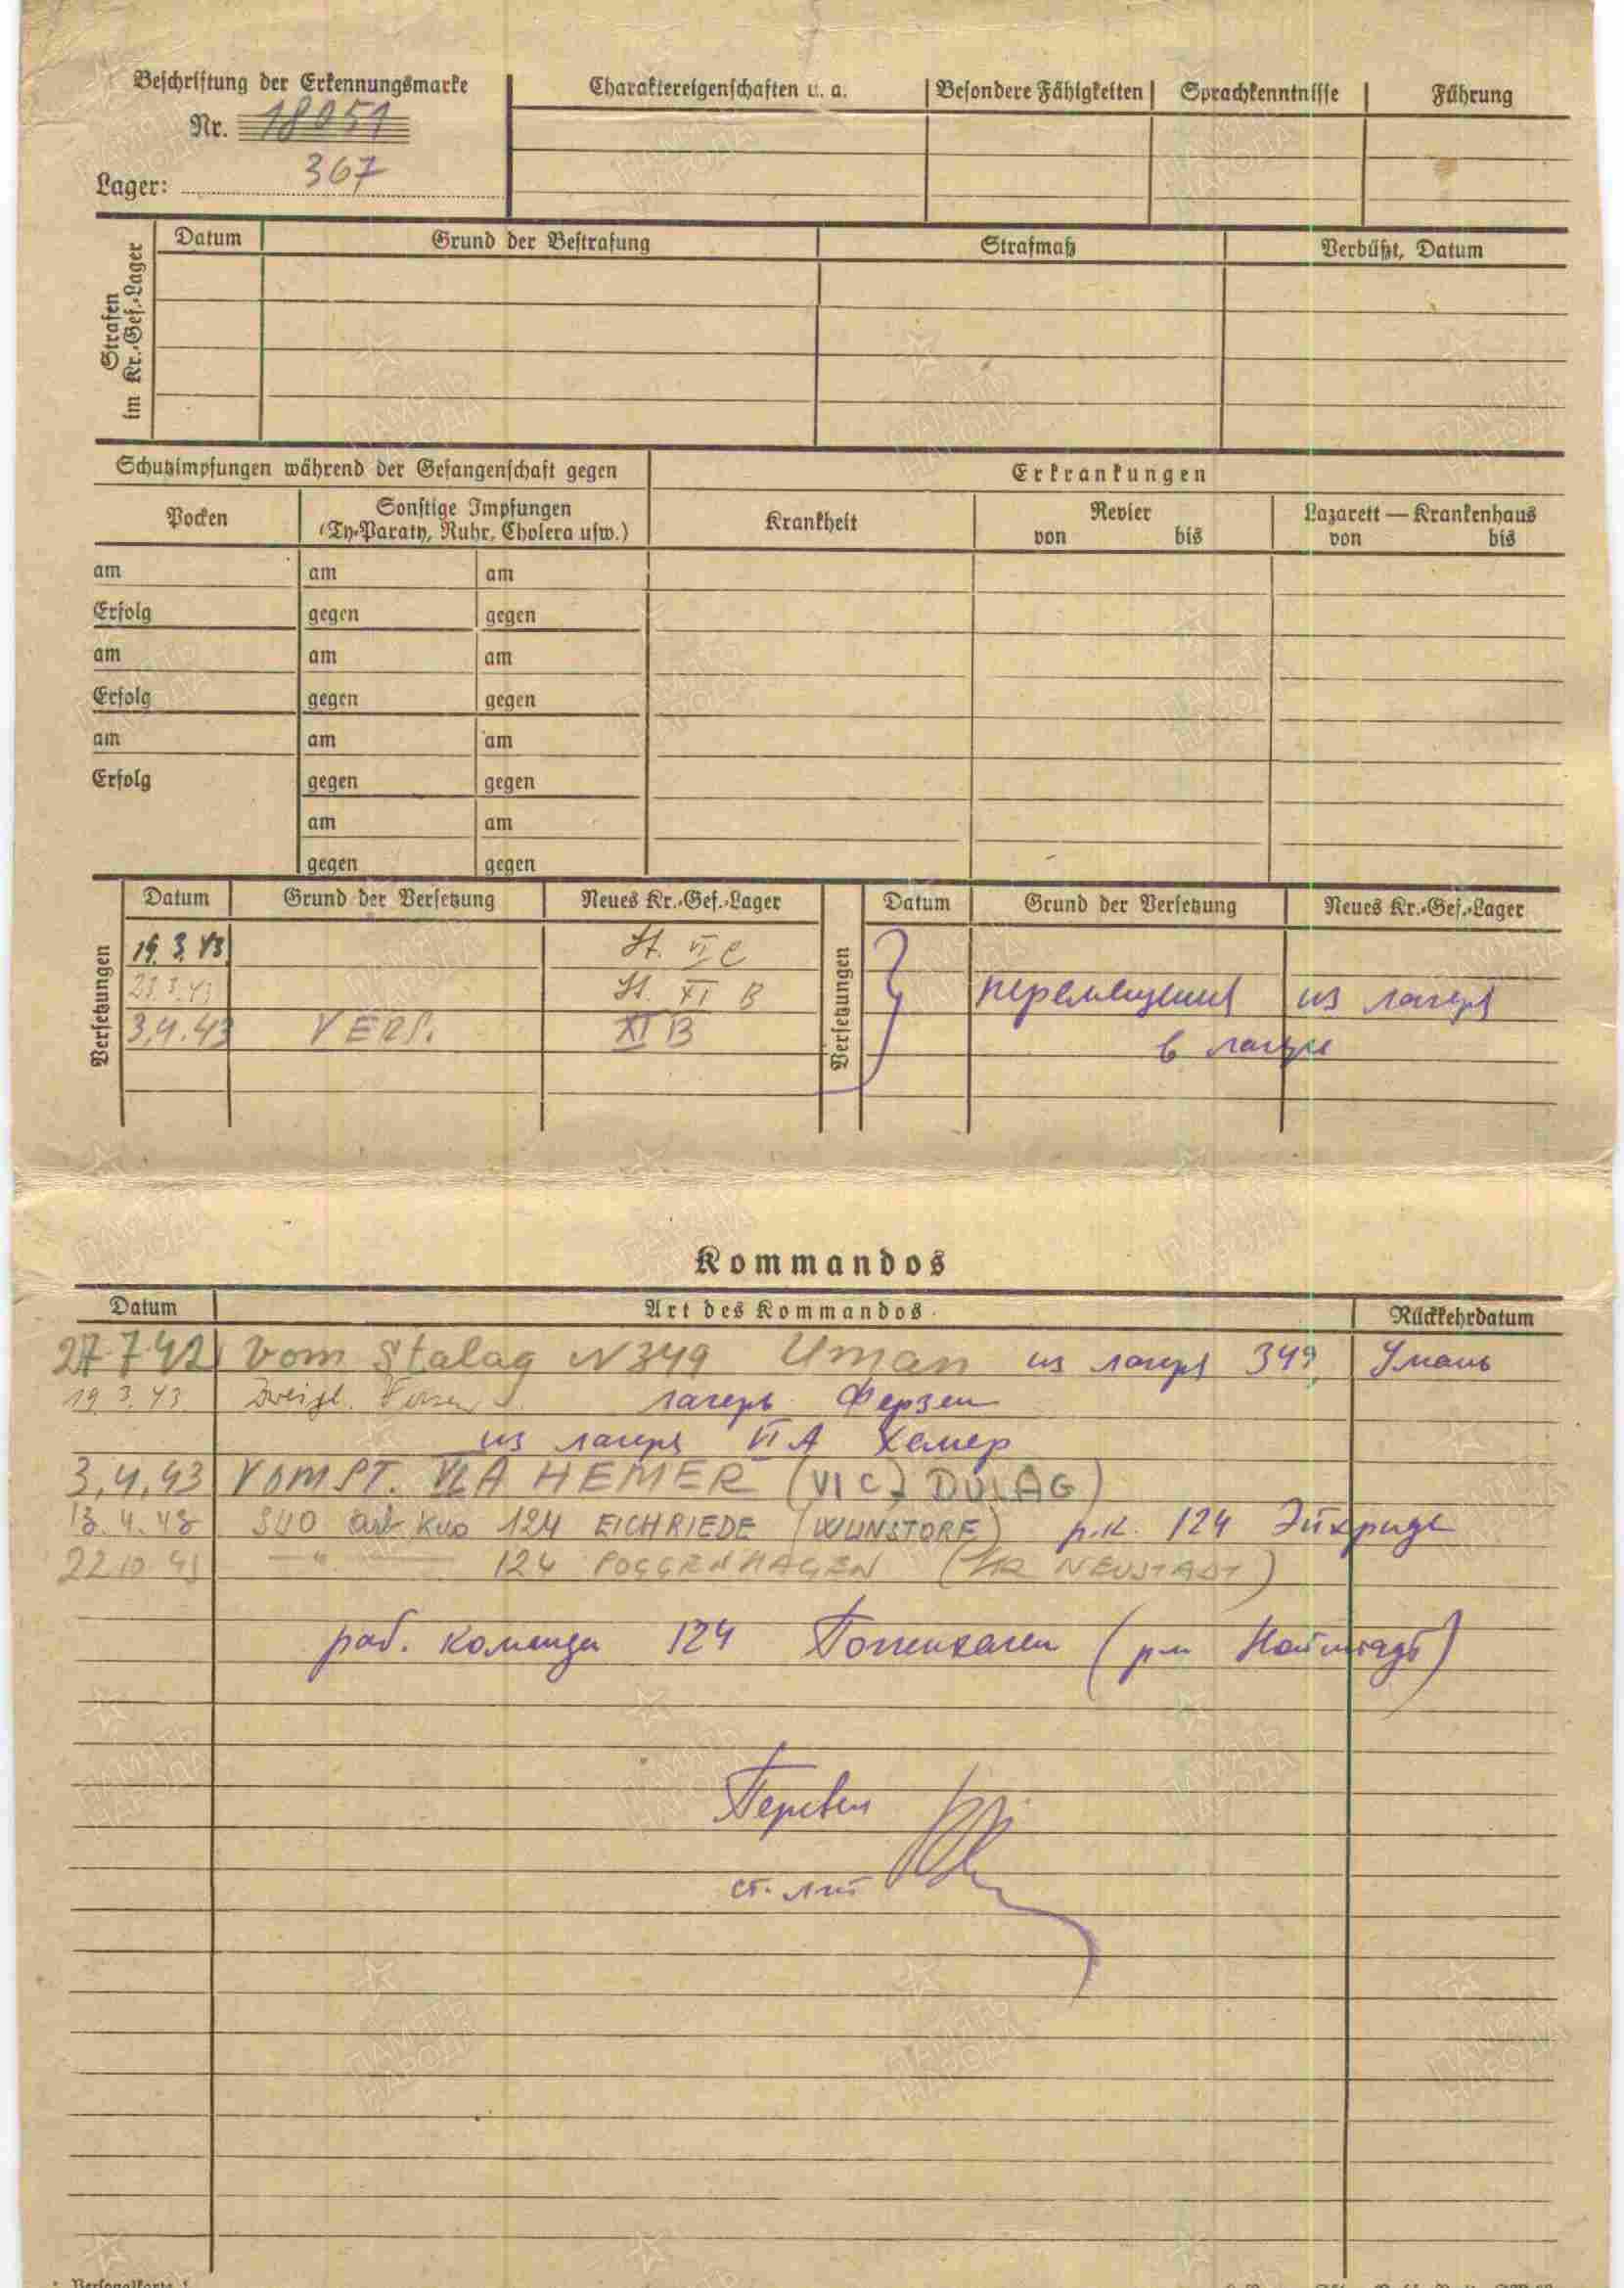 Beschriftung der Erkennungsmarke
Nr. 18051
Lager: 367
Charaktereigenschaften u. a. Besondere Fähigkeiten Sprachkenntnisse Führung
Strafen im Kr.-Gef.-Lager
Datum Grund der Bestrafung Strafmaß Verbüßt, Datum
Schutzimpfungen während der Gefangenschaft gegen
Erkrankungen
Pocken Sonstige Impfungen
(Ty-Paraty, Ruhr, Cholera usw.)
Krankheit Revier Lazarett — Krankenhaus
von bis von bis
am am am
Erfolg gegen gegen
am am am
Erfolg gegen gegen
am am am
Erfolg gegen gegen
am am
gegen gegen
Versetzungen
Datum Grund der Versetzung Neues Kr.-Gef.-Lager
19.3.43 St. VI C
23.3.43 St. XI B
3.4.43 VERS. XI B
Versetzungen
Datum Grund der Versetzung Neues Kr.-Gef.-Lager
перемещения из лагеря
в лагерь
Kommandos
Datum Art des Kommandos Rückkehrdatum
27.7.42 Vom Stalag N 349 Uman из лагеря 349 Умань
19.3.43. Zweigl. Versen лагерь Ферзен
из лагеря VI A Хемер
3,4,43 VOM ST. VI A HEMER (VI C, DULAG)
13.4.43 124 EICHRIEDE (WUNSTORF) р.к. 124 Эйхриде
22 10 43 — " — 124 POGGENHAGEN (KR NEUSTADT)
раб. команда 124 Поггенхаген (р-н Нойштадт)
Перевел
ст. л-т
Personalkarte I